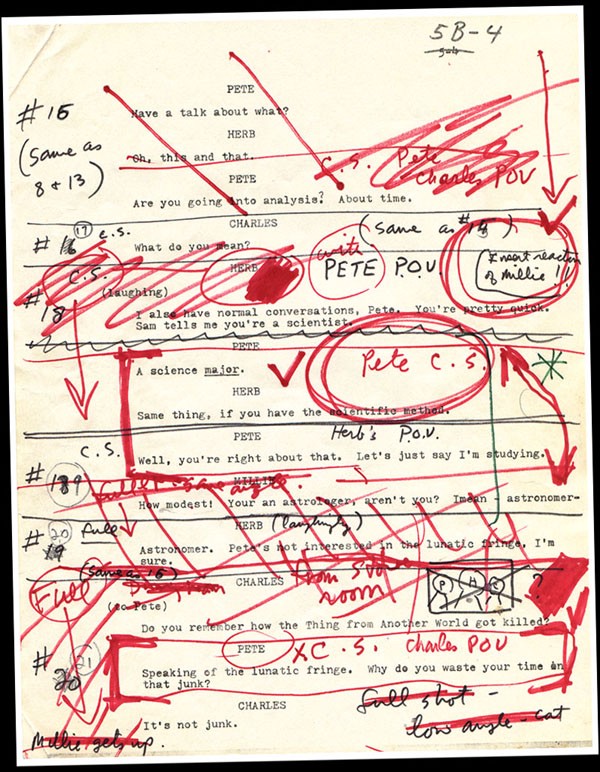 5B-4
PETE
#15
Have a talk about what?
HERB
(Same as
8 & 13)
Oh, this and that.
C.S. Pete
Charles POV
PETE
Are you going into analysis? About time.
CHARLES
(Same as #15)
# 17 C.S.
What do you mean?
with
PETE P.O.V.
Insert reaction
of Millie!!
C.S.
HERB
(laughing)
#18
I also have normal conversations, Pete. You're pretty quick.
Sam tells me you're a scientist.
PETE
Pete C.S.
A science major.
HERB
Same thing, if you have the scientific method.
PETE
Herb's P.O.V.
C.S.
Well, you're right about that. Let's just say I'm studying.
MILLIE
# 19
full - same angle.
How modest! Your an astrologer, aren't you? Imean - astronomer-
20 full
HERB (laughingly)
# 19
Astronomer. Pete's not interested in the lunatic fringe, I'm
sure.
(same as 16)
Full
CHARLES
from
room
P H C ?
(to Pete)
Do you remember how the Thing from Another World got killed?
PETE
X C.S. Charles POV
# 20 21
Speaking of the lunatic fringe. Why do you waste your time on
that junk?
CHARLES
full shot -
low angle - cat
It's not junk.
Millie gets up.